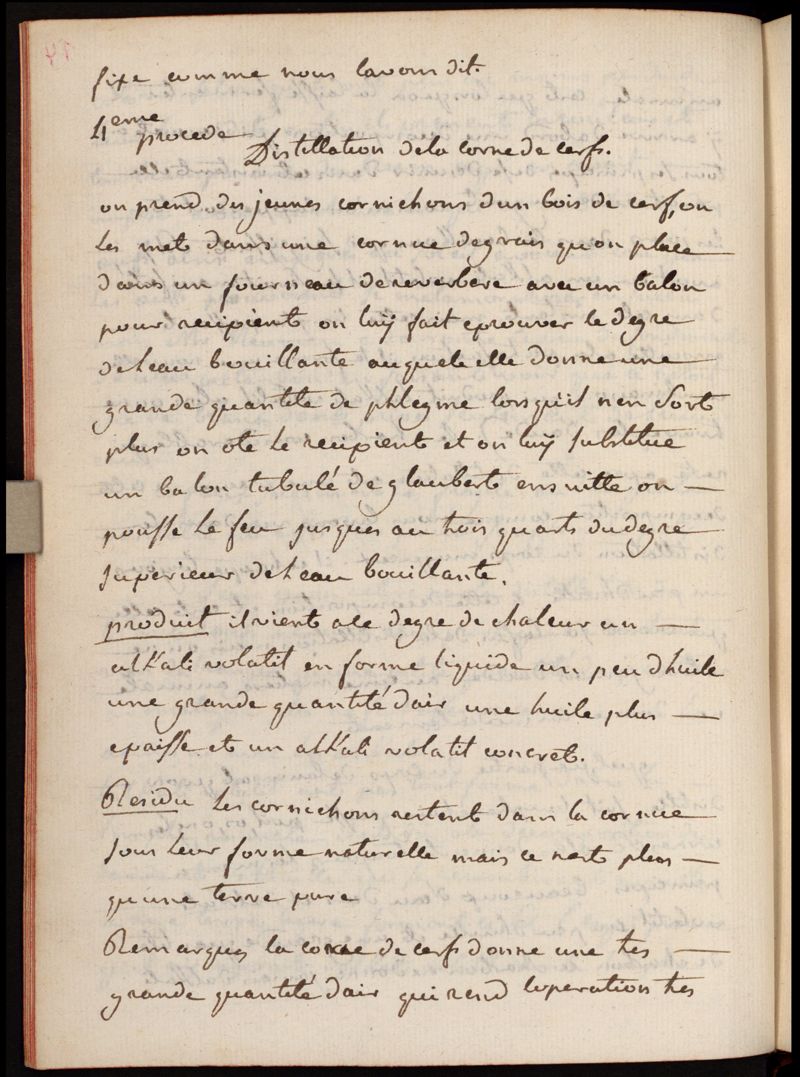 fixe comme nous lavons dit.
4eme procede
Distillation de la corne de cerfs.
on prend des jeunes cornichons dun bois de cerf, on
les mets dans une cornue de grais qu on place
dans un fourneau de reverbere avec un balon
pour recipient on luÿ fait eprouver le degre
de leau bouillante auquele elle donne une
grande quantite de phlegme lorsquil nen sort
plus on ote le recipient et on luÿ substitue
un balon tubulé de glaubert ensuitte on
pousse le feu jusques au trois quarts du degre
superieur de leau bouillante.
produit il vient a ce degre de chaleur un
alkali volatil en forme liquide un peu dhuile
une grande quantité dair une huile plus
epaisse et un alkali volatil concret.
Residu les cornichons restent dans la cornue
sous leur forme naturelle mais ce nest plus
qu une terre pure
Remarques la corne de cerfs donne une tres
grande quantité dair qui rend loperation tres